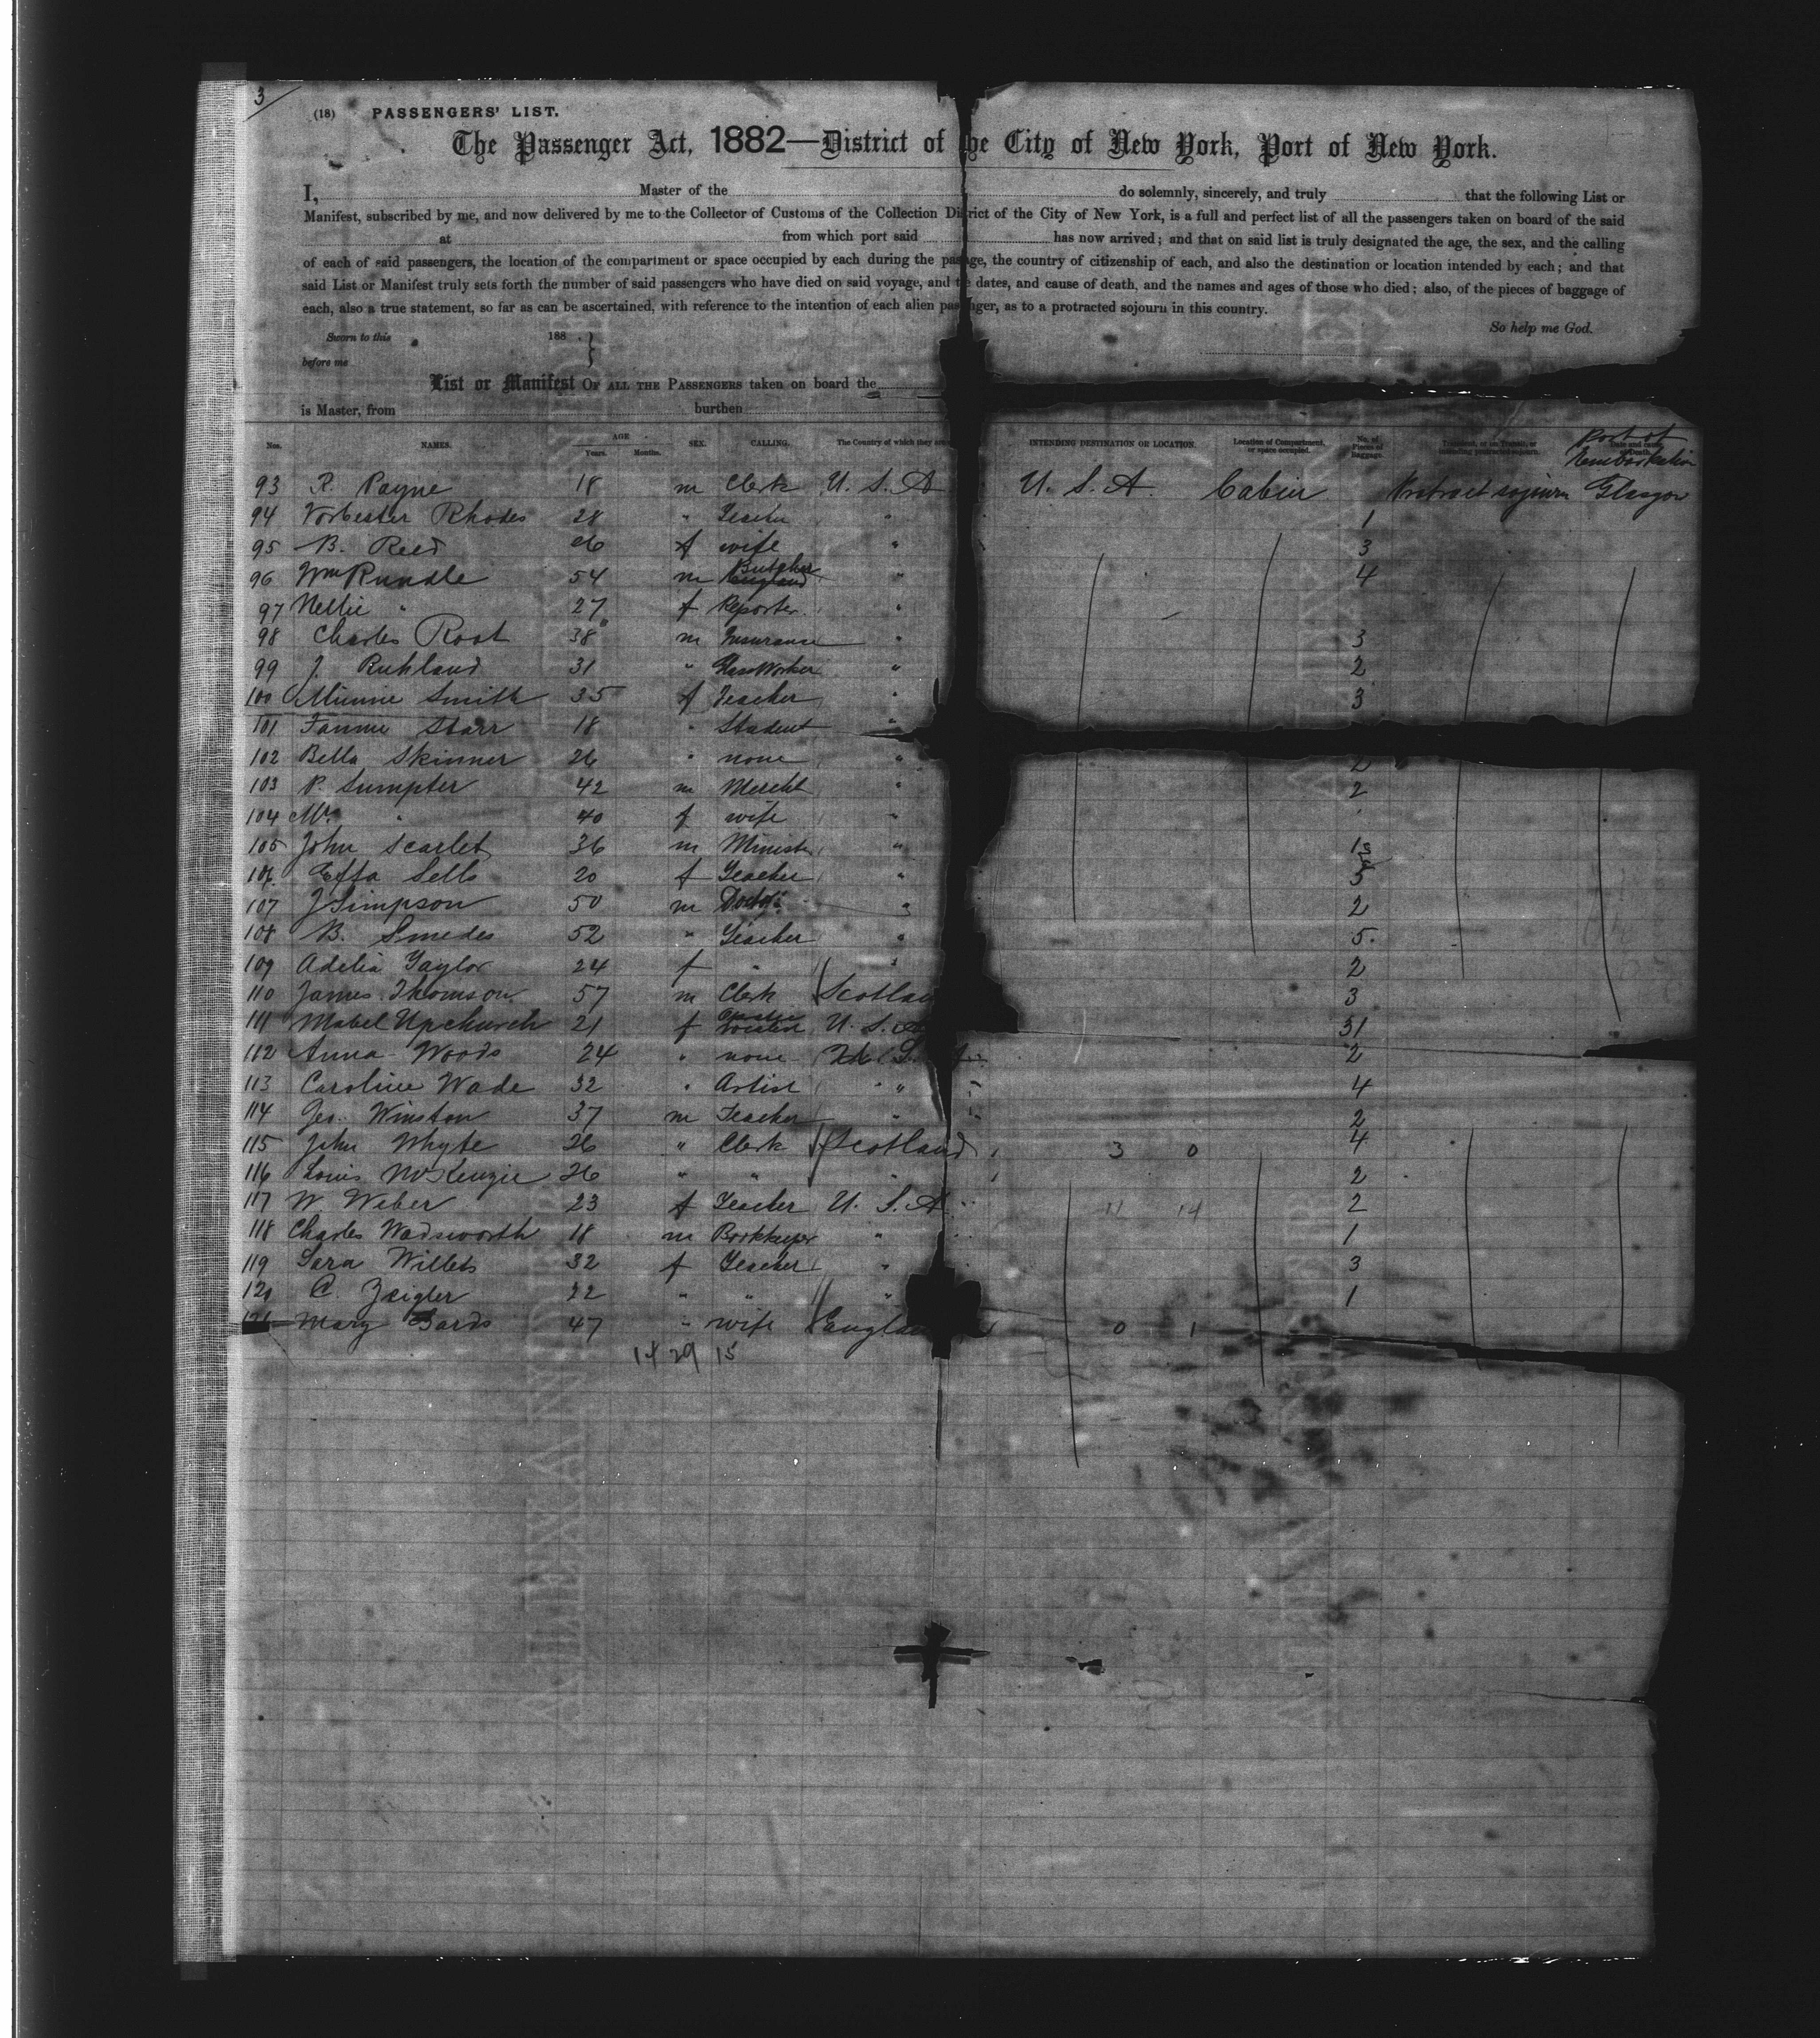 3
(18) PASSENGERS' LIST.
The Passenger Act, 1882—District of the City of New York, Port of New York.
I, Master of the do solemnly, sincerely, and truly that the following List or
Manifest, subscribed by me, and now delivered by me to the Collector of Customs of the Collection District of the City of New York, is a full and perfect list of all the passengers taken on board of the said
at from which port said has now arrived; and that on said list is truly designated the age, the sex, and the calling
of each of said passengers, the location of the compartment or space occupied by each during the passage, the country of citizenship of each, and also the destination or location intended by each; and that
said List or Manifest truly sets forth the number of said passengers who have died on said voyage, and the dates, and cause of death, and the names and ages of those who died; also, of the pieces of baggage of
each, also a true statement, so far as can be ascertained, with reference to the intention of each alien passenger, as to a protracted sojourn in this country.
So help me God.
Sworn to this 188 .
before me
List or Manifest OF ALL THE PASSENGERS taken on board the
is Master, from burthen
Nos. NAMES. AGE Years. Months. SEX. CALLING. The Country of which they are INTENDING DESTINATION OR LOCATION. Location of Compartment, or space occupied. No. of Pieces of Baggage. Transient, or in Transit, or intending protracted sojourn. Date and cause of Death. Port of Embarkation
93 R. Payne 18 m Clerk U. S. A U. S. A. Cabin Protract sojourn Glasgow
94 Rhodes 28 " " 1
95 B. Reed 26 f wife " 3
96 Wm Rundle 54 m Butcher " 4
97 Nellie " 27 f Reporter "
98 Charles Root 38 m Insurance " 3
99 J. Ruhland 31 " Glass Worker " 2
100 Minnie Smith 35 f Teacher " 3
101 Fannie Starr 18 " Student "
102 Bella Skinner 26 " none " 2
103 P. Sumpter 42 m Mercht " 2
104 Mrs " 40 f wife "
105 John Scarlet 36 m Minister "
106 Effa Sells 20 f Teacher " 3
107 J Simpson 50 m Doctor " 2
108 B. Smedes 52 " Teacher " 5
109 Adelia Taylor 24 f " " 2
110 James Thomson 57 m Clerk Scotlan 3
111 Mabel Upchurch 21 f U. S. A 31
112 Anna Woods 24 " none U. S. A. 2
113 Caroline Wade 32 " Artist " 4
114 Geo. Winston 37 m Teacher " 2
115 John Whyte 26 " Clerk Scotland 3 0 4
116 Louis McKenzie 26 " " " 2
117 W. Weber 23 f Teacher U. S. A 11 14 2
118 Charles Wadsworth 18 m Bookkeeper " 1
119 Sara Willets 32 f Teacher " 3
120 C. Zeigler 22 " " " 1
121 Mary 47 " wife Englan 0 1
14 29 15